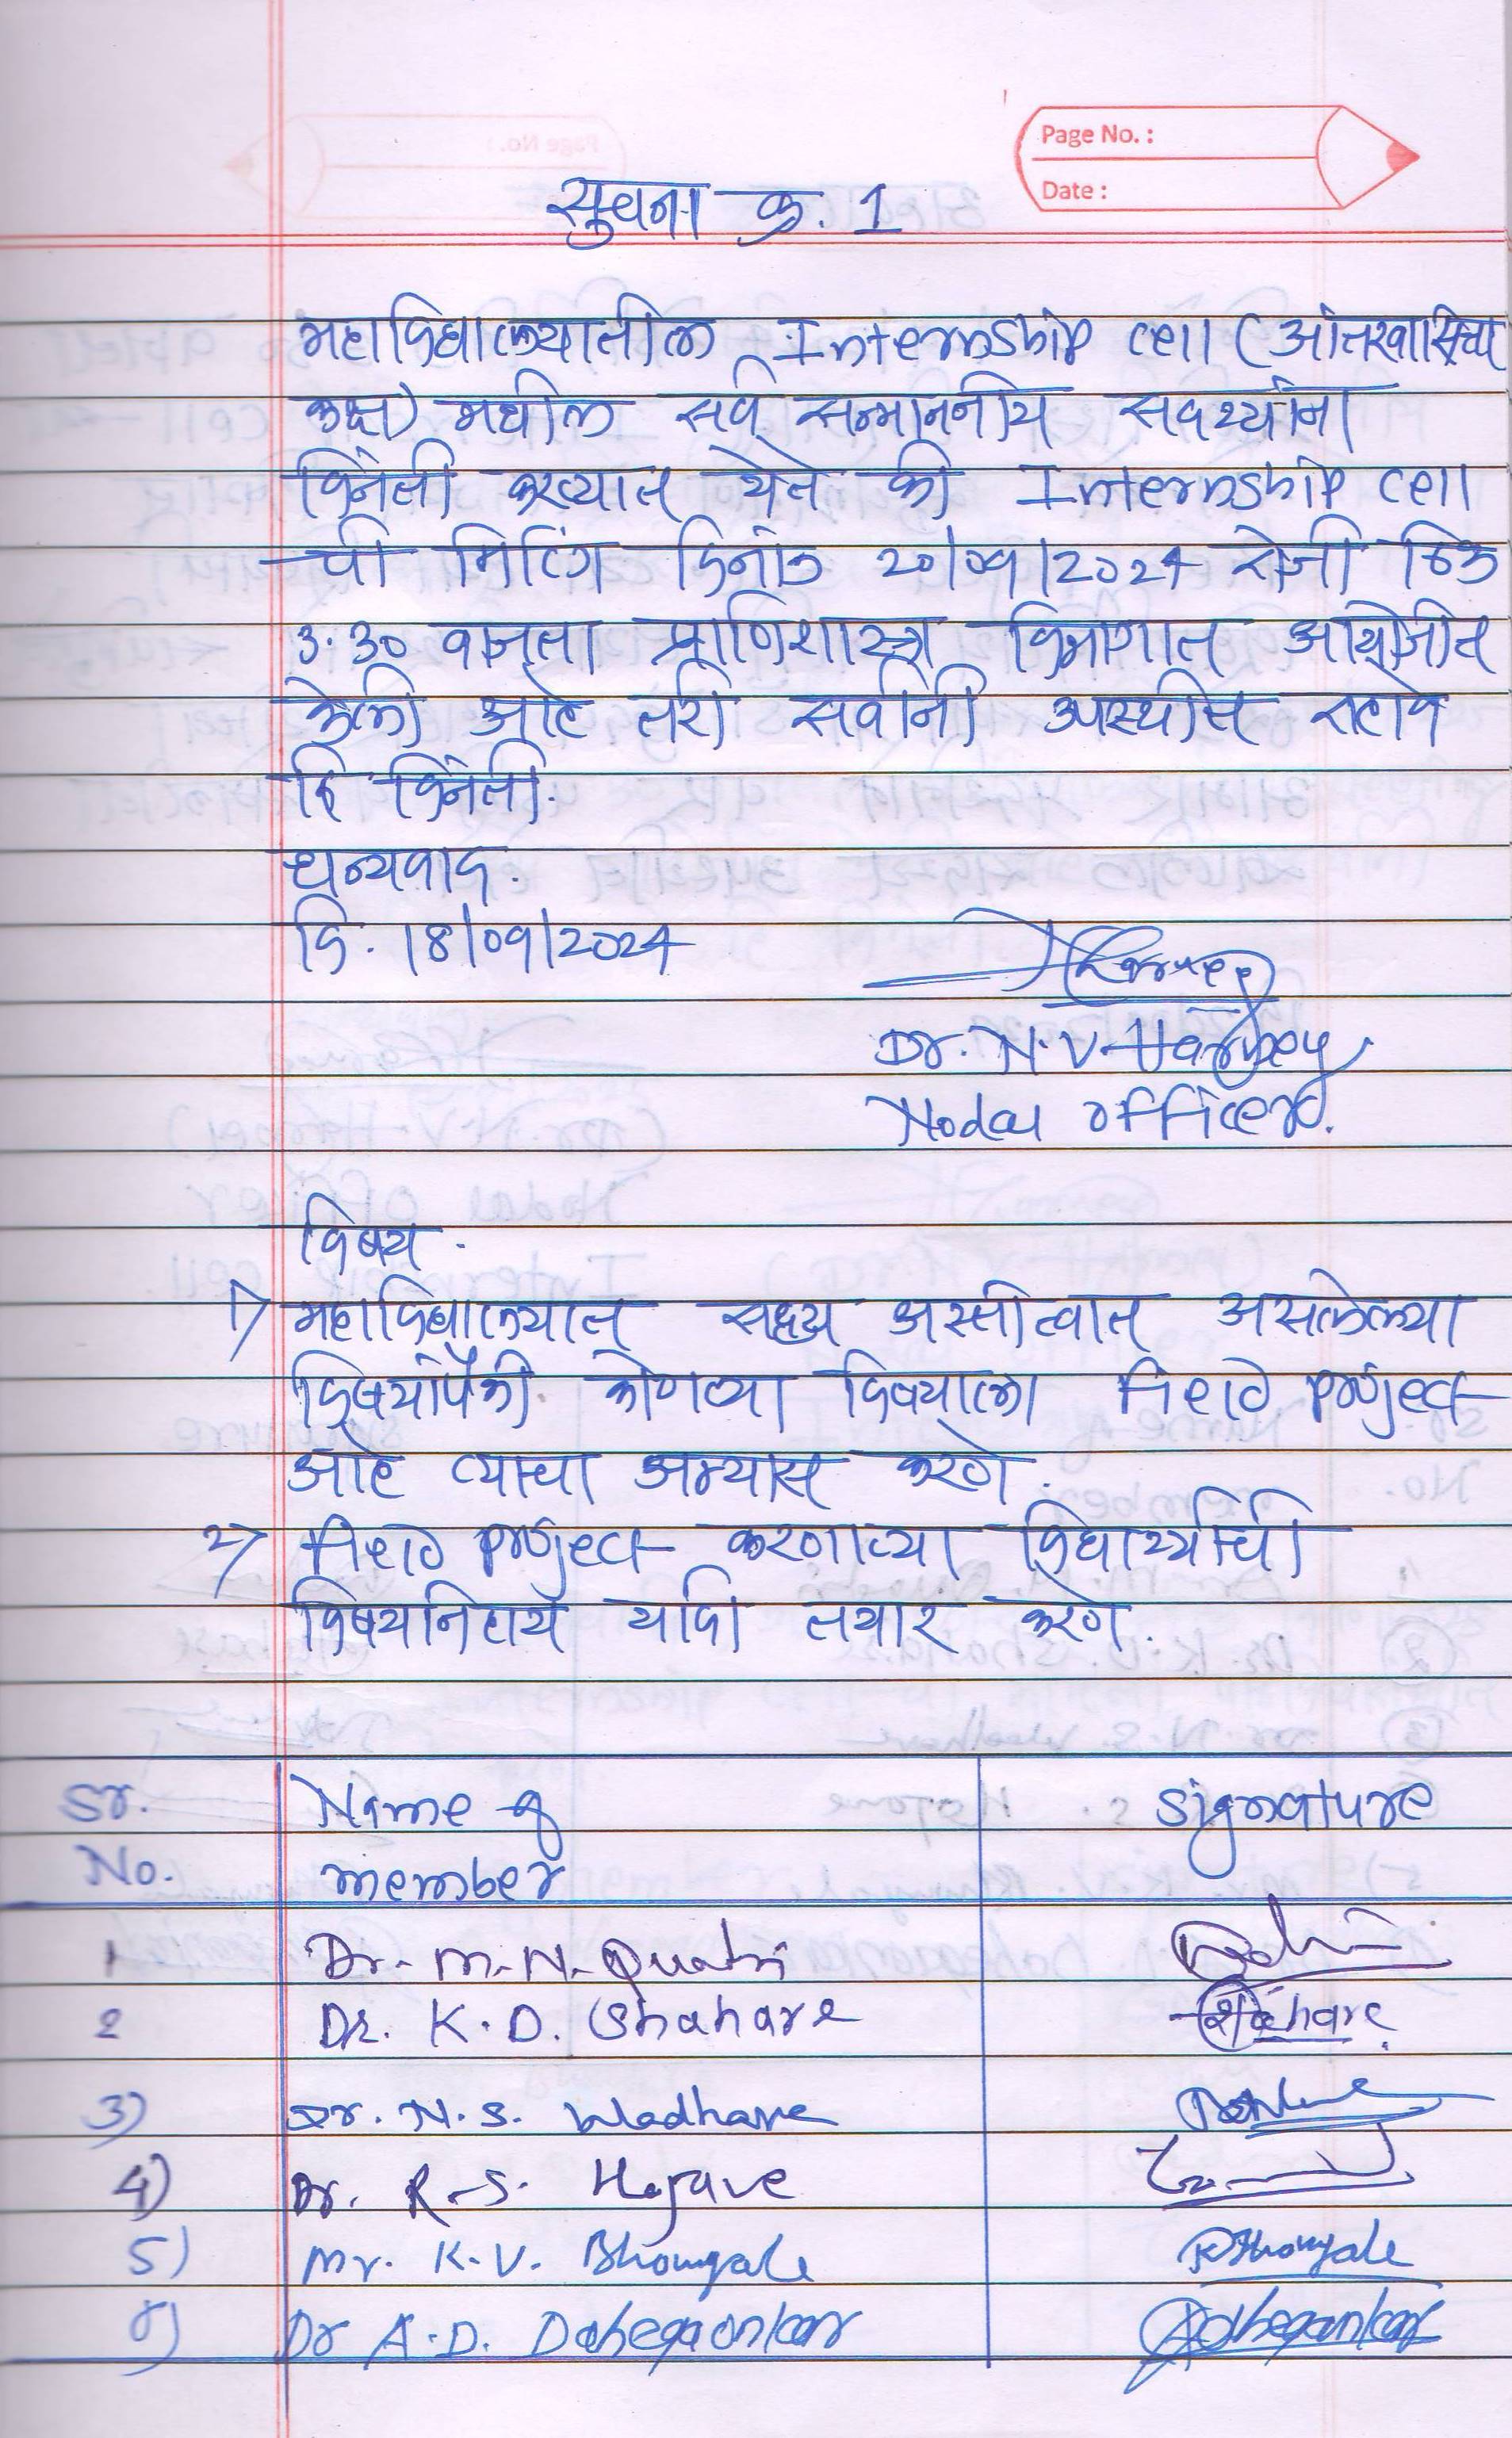 Page No. :
Date :
सुचना क्र. 1
महाविद्यालयातील Internship cell (आंतरवासिता
कक्ष) मधील सर्व सन्माननीय सदस्यांना
विनंती करण्यात येते की Internship cell
ची मिटिंग दिनांक 20/09/2024 रोजी ठिक
3.30 वाजता प्राणिशास्त्र विभागात आयोजीत
केली आहे तरी सर्वांनी उपस्थीत राहावे
हि विनंती.
धन्यवाद.
दि. 18/09/2024
Dr. N. V. Harney
Nodal officer.
विषय.
1) महाविद्यालयात सद्या अस्तीत्वात असलेल्या
विषयांपैकी कोणत्या विषयाला Field project
आहे त्याचा अभ्यास करणे.
2) Field project करणाऱ्या विद्यार्थ्यांची
विषयनिहाय यादी तयार करणे.
Sr. No. Name of member Signature
1 Dr. M. N. Quatri
2 Dr. K. D. Shahare Shahare
3) Dr. N. S. Wadhave
4) Dr. R. S. Hajare
5) Mr. K. V. Bhongale KBhongale
6) Dr A. D. Dahegaonkar Adhegaonkar